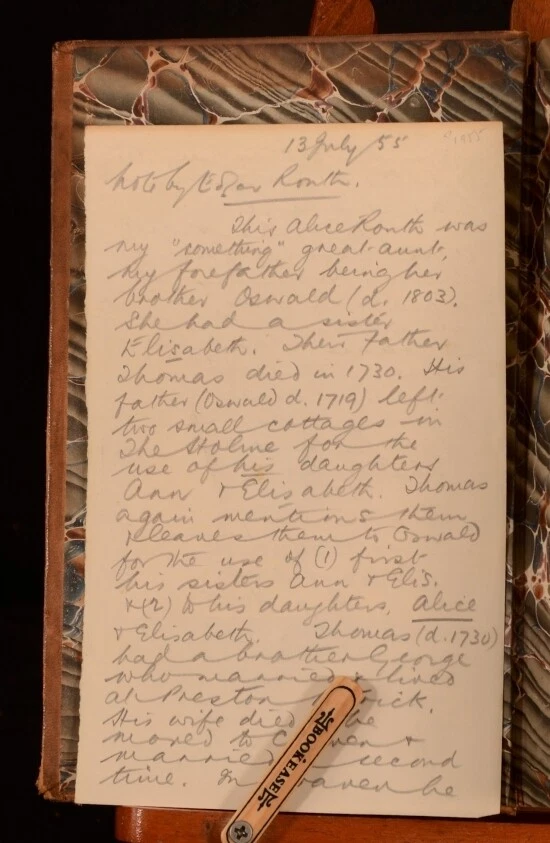 13 July 55
Note by Edgar Routh.
This Alice Routh was
my "something" great-aunt,
my forefather being her
brother Oswald (d. 1803).
She had a sister
Elisabeth. Their father
Thomas died in 1730. His
father (Oswald d. 1719) left
two small cottages in
The Holme for the
use of his daughters
Ann & Elisabeth. Thomas
again mentions them
& leaves them to Oswald
for the use of (1) first
his sisters Ann & Elis.
& (2) to his daughters, Alice
& Elisabeth. Thomas (d. 1730)
had a brother George
who married & lived
at Preston
His wife died
moved to
married second
time. In he
BOOKEASE